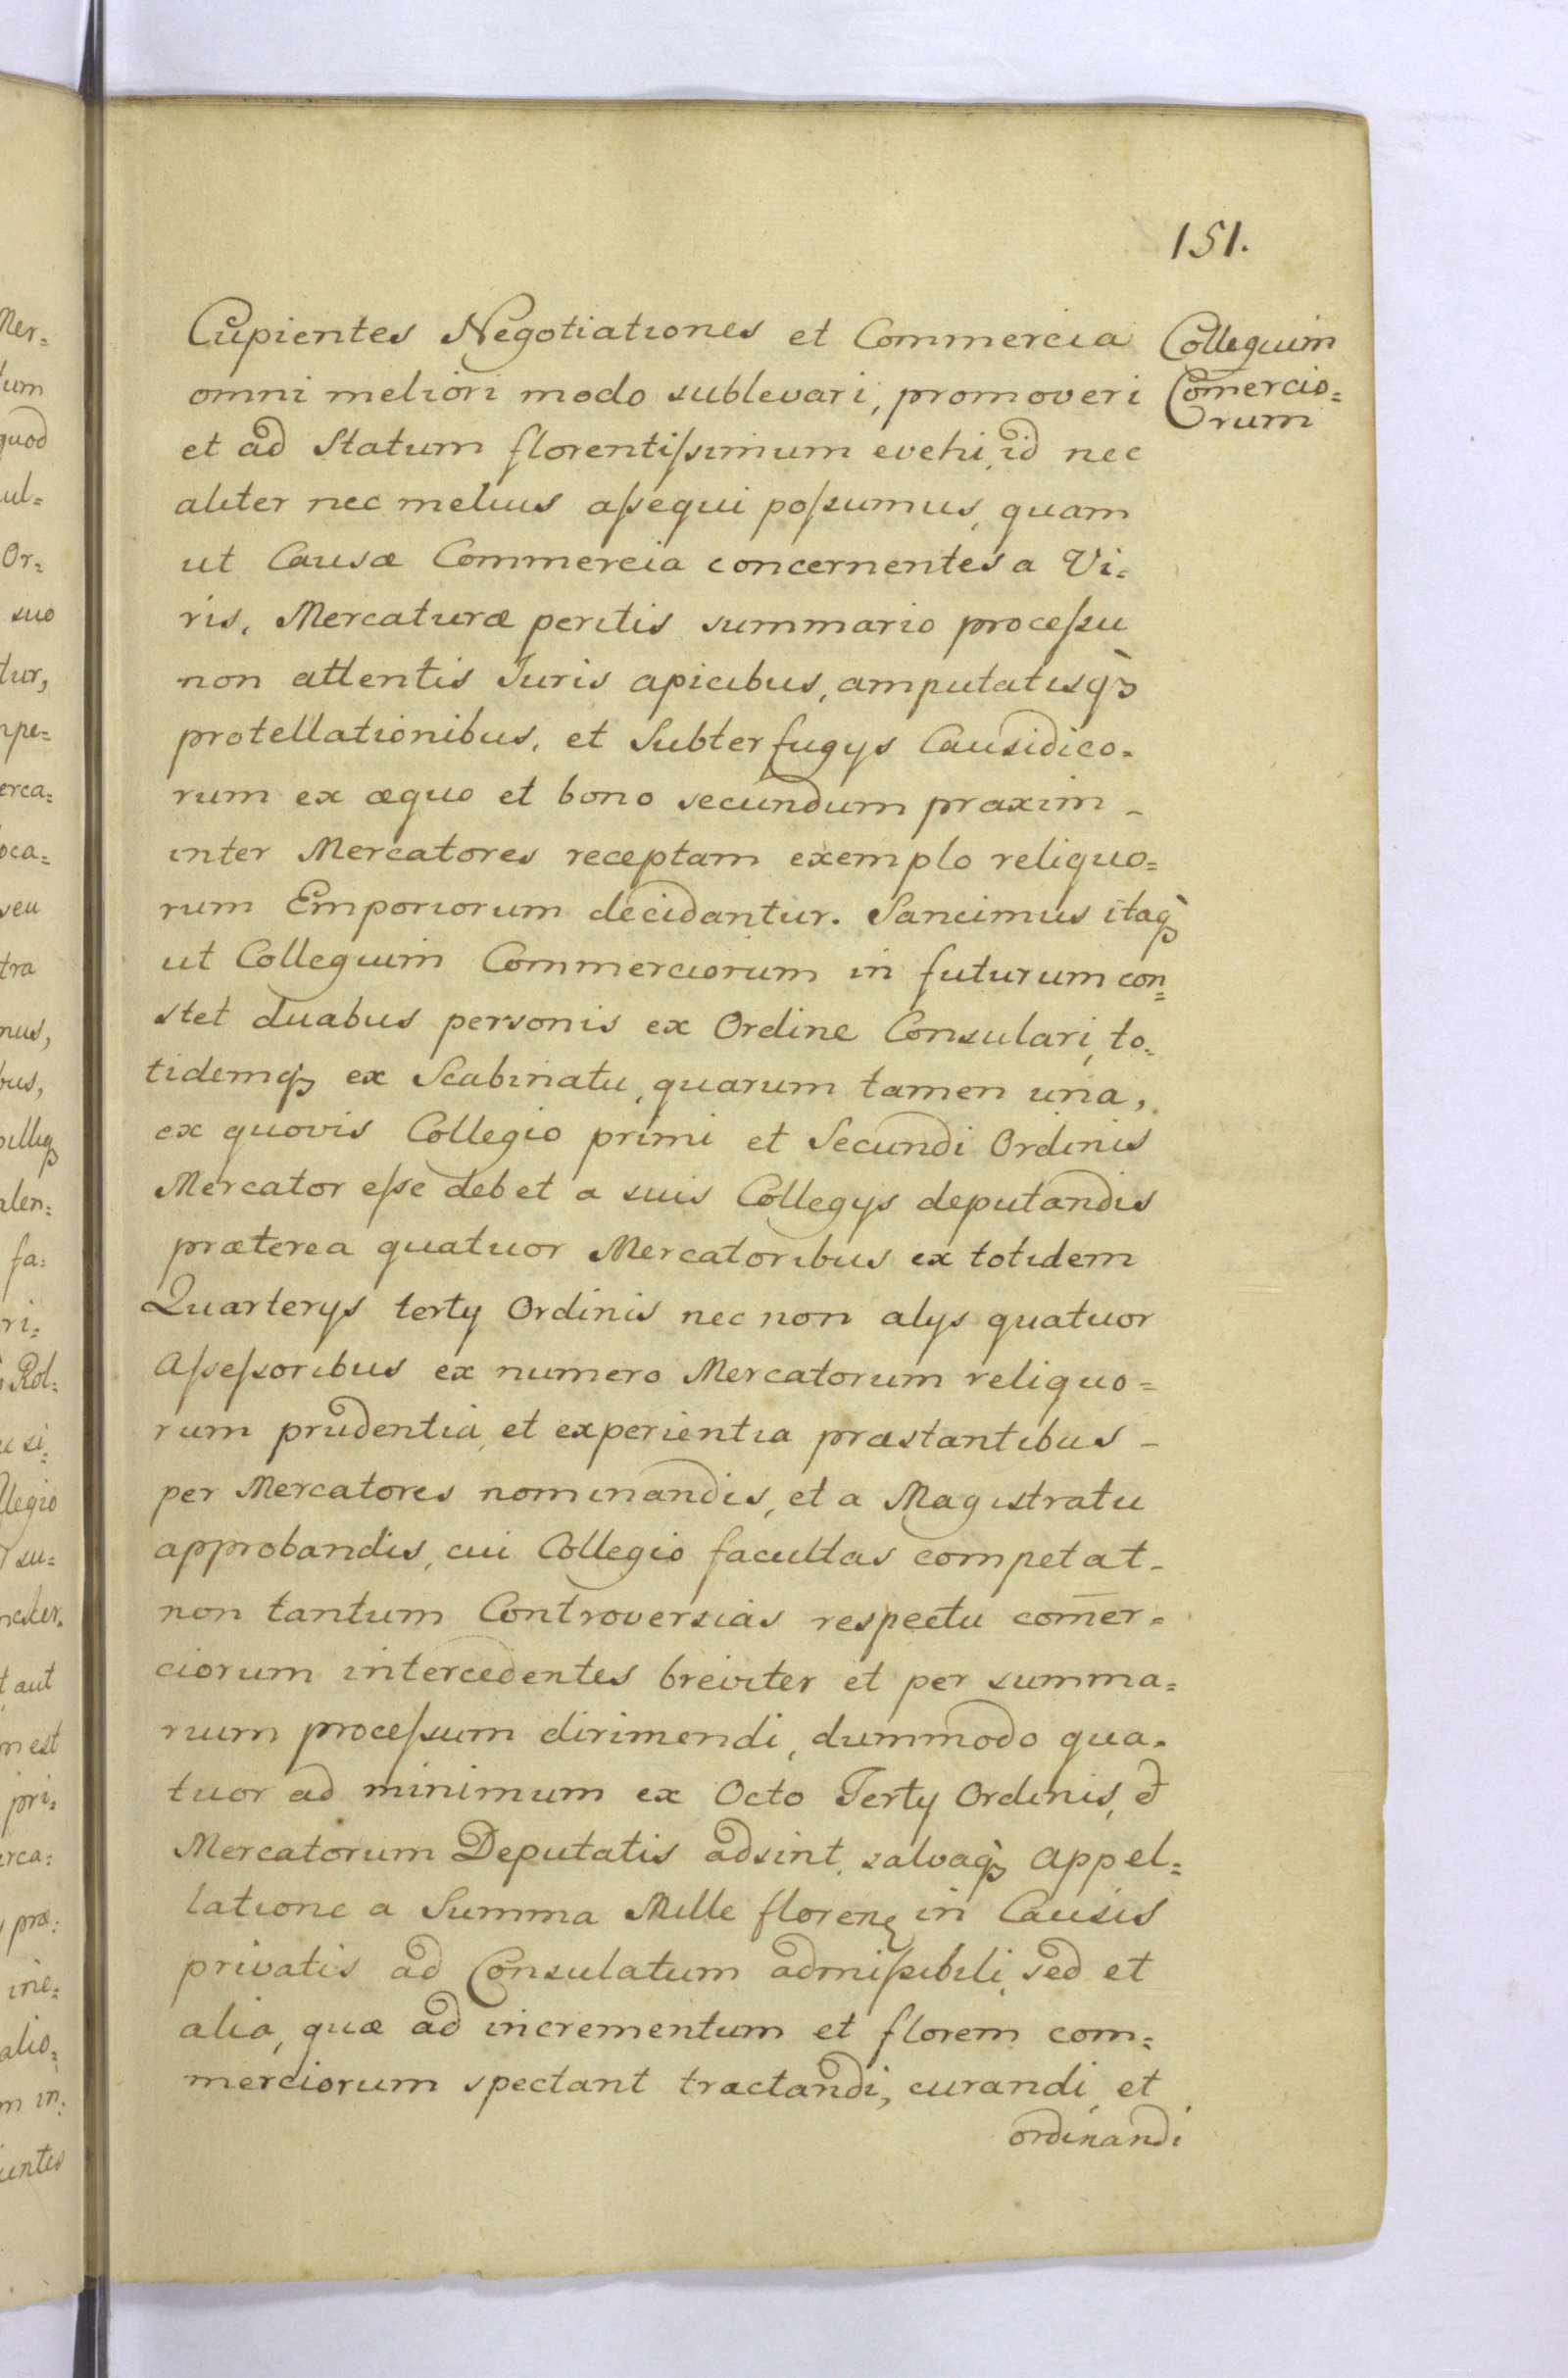 151.
Cupientes Negotiationes et Commercia
omni meliori modo sublevari, promoveri
et ad Statum florentiſsimum evehi, id nec
aliter nec melius aſsequi poſsumus, quam
ut Causæ Commercia concernentes a Vi=
ris, Mercaturæ peritis summario proceſsu
non attentis Juris apicibus, amputatisq́3
protellationibus, et Subterfugys Causidico=
rum ex æquo et bono secundum praxim -
inter Mercatores receptam exemplo reliquo=
rum Emporiorum decidantur. Sancimus itaq́3
ut Collegium Commerciorum in futurum con=
stet duabus personis ex Ordine Consulari, to=
tidemq3 ex Scabinatu, quarum tamen una,
ex quovis Collegio primi et Secundi Ordinis
Mercator eſse debet a suis Collegys deputandis
præterea quatuor Mercatoribus ex totidem
Quarterys terty Ordinis nec non alys quatuor
Aſseſsoribus ex numero Mercatorum reliquo=
rum prudentia, et experientia præstantibus -
per Mercatores nominandis, et a Magistratu
approbandis, cui Collegio facultas competat -
non tantum Controversias respectu com̄er=
ciorum intercedentes breviter et per summa=
rium proceſsum dirimendi, dummodo qua=
tuor ad minimum ex Octo Terty Ordinis, et
Mercatorum Deputatis adsint, salvaq́3 appel=
latione a Summa Mille floren. in Causis
privatis ad Consulatum admiſsibili, sed et
alia, quæ ad incrementum et florem com=
merciorum spectant tractandi, curandi, et
ordinandi
Collegium
Com̄ercio=
rum
Mer=
tum
quod
ul=
Or=
suo
tur,
mpe=
erca=
oca=
seu
tra
mus,
bus,
alen=
fa=
ri=
Rol=
si=
llegio
su=
aut
m est
pri=
erca=
præ=
ine=
alio=
m in=